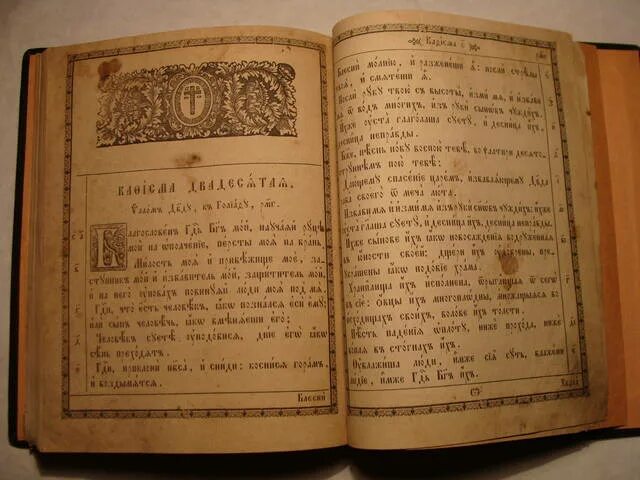 КАѲІСМА ДВАДЕСѦТАѦ.
Ѱаломъ Дв҃ду, къ Голїаду, рм҃г.
Благословенъ Гд҇ь Бг҃ъ мой, научаѧй руцѣ
мои на ѡполченїе, персты моѧ на брань.
Милость моѧ и прибѣжище мое, за-
ступникъ мой и избавитель мой, защититель мой,
и на него уповахъ повинуѧй люди моѧ под мѧ.
Гд҇и, что есть человѣкъ, ꙗкѡ позналсѧ еси ему;
или сынъ человѣчь, ꙗкѡ вмѣнѧеши его;
Человѣкъ суетѣ уподобисѧ, днїе егѡ ꙗкѡ
сѣнь преходѧтъ.
Гд҇и, приклони нб҃са, и сниди: коснисѧ горамъ,
и воздымѧтсѧ.
Блесни
Каѳісма к҃
Блесни молнїю, и разженеши ѧ: посли стрѣлы
твоѧ, и смѧтеши ѧ.
Посли руку твою съ высоты, изми мѧ, и избави мѧ
ѿ водъ многихъ, изъ руки сынѡвъ чуждихъ:
Ихже уста глаголаша суету, и десница ихъ,
десница неправды.
Бж҃е, пѣснь нову воспою тебѣ, во ѱалтири десѧто-
струннѣмъ пою тебѣ:
Дающему спасенїе царемъ, избавлѧющему Дв҃да
раба своего ѿ меча люта.
Избави мѧ и изми мѧ изъ руки сынѡвъ чуждихъ: ихже
уста глаголаша суету, и десница ихъ, десница неправды.
Ихже сынове ихъ ꙗкѡ новосажденїѧ водруженнаѧ
въ юности своей: дщери ихъ удобрены, пре-
украшены ꙗкѡ подобїе храма.
Хранилища ихъ исполнена, ѿрыгающаѧ ѿ сегѡ
въ сїе: овцы ихъ многоплѡдны, множащыѧсѧ во
исходищахъ своихъ, волове ихъ толсти.
Нѣсть паденїѧ ѡплоту, ниже прохода, ниже
воплѧ въ стогнахъ ихъ.
Ѹблажиша люди, имже сїѧ суть, блажени
людїе, имже Гд҇ь Бг҃ъ ихъ.
Хвала